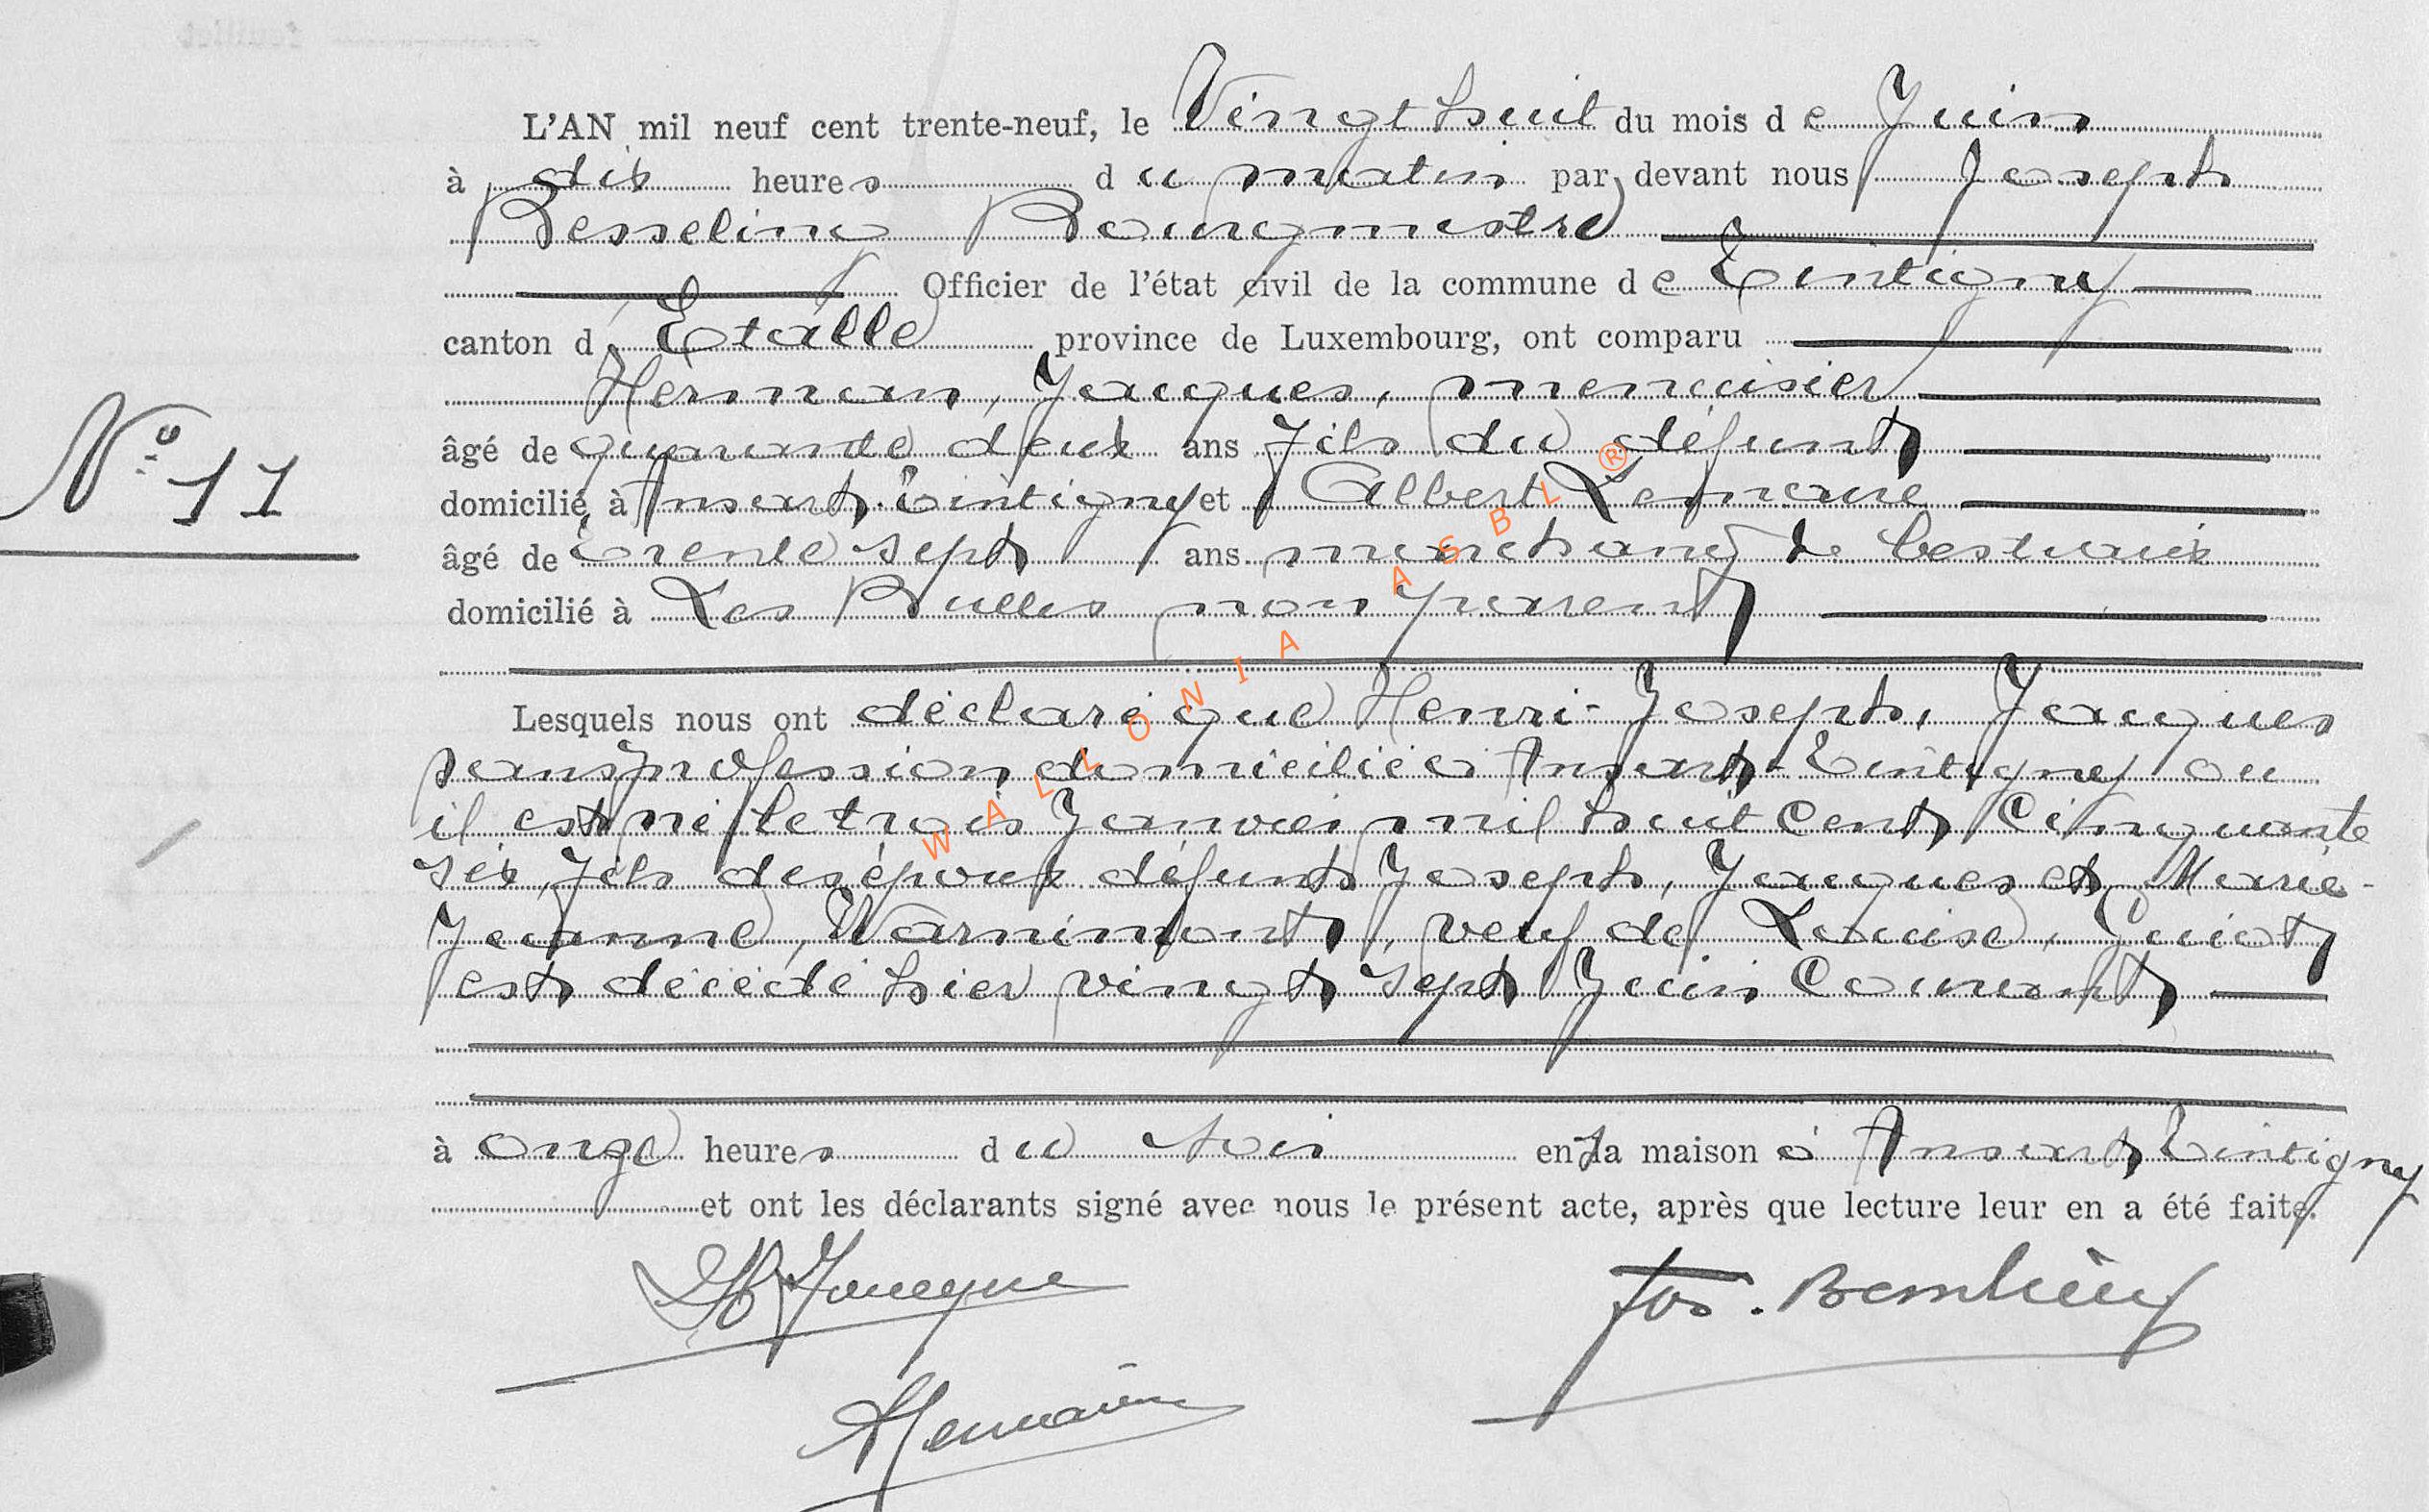 L'AN mil neuf cent trente-neuf, le Vingt huit du mois de Juin
à dix heures du matin par devant nous Joseph
Bourgmestre
Officier de l'état civil de la commune de Tintigny
canton d'Etalle province de Luxembourg, ont comparu
Herman, Jacques, menuisier
N° 11
âgé de quarante deux ans fils du défunt
domicilié à Ansart-Tintigny et Albert Lemaire
âgé de trente sept ans marchand de bestiaux
domicilié à Les Bulles non parent
Lesquels nous ont déclaré que Henri-Joseph, Jacques
sans profession domicilié à Ansart-Tintigny ou
il est né le trois Janvier mil huit cent cinquante
six, fils des époux défunts Joseph, Jacques et Marie-
Jeanne, Warnimont, veuf de Louise, Guiot
est décédé hier vingt sept Juin Courant
à onze heures du soir en sa maison à Ansart Tintigny
et ont les déclarants signé avec nous le présent acte, après que lecture leur en a été faite.
H Jacque
Jos.
ALemaire
WALLONIA ASBL ®